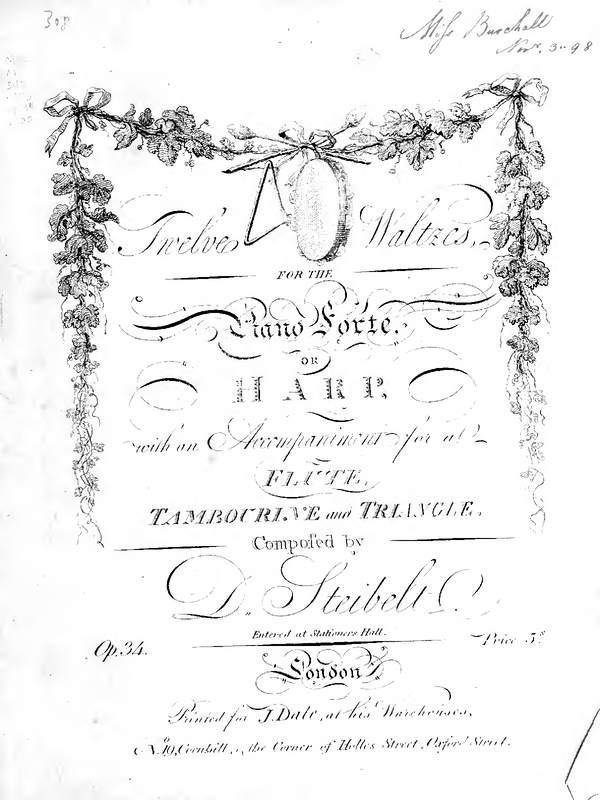 308
Miss Burchall
Nov.r 3.. 98
Twelve Waltzes,
FOR THE
Piano Forte,
OR
HARP,
with an Accompaniment for a
FLUTE,
TAMBOURINE and TRIANGLE,
Compoſed by
D. Steibelt.
Entered at Stationers Hall.
Op.34. Price 5.s
London
Printed for J. Dale, at his Warehouses,
N.o 19, Cornhill, & the Corner of Holles Street, Oxford Street.